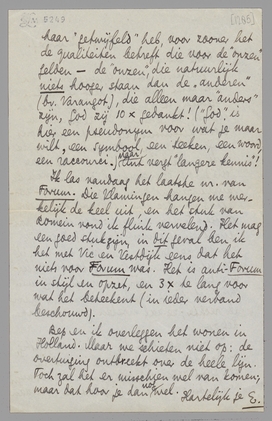 5249 [755]
haar "getwijfeld" heb, voor zoover het
de qualiteiten betreft die voor de "onzen"
gelden — de "onzen", die natuurlijk
niets hooger staan dan de "anderen"
(bv. Varangot), die alleen maar "anders"
zijn, God zij 10 x gedankt! ("God" is
hier een pseudoniem voor wat je maar
wilt, een symbool, een teeken, een woord
een raccourci.) maar Dat vergt "langere kennis"!
Ik las vandaag het laatste nr. van
Forum. Die Vlamingen hangen me wer-
kelijk de keel uit, en het stuk van
Romein vond ik fluik vervelend. Het mag
een goed stuk zijn, in dit geval ben ik
het met Vic en Vestdijk eens, dat het
niets voor Forum was. Het is anti-Forum
in stijl en opzet, en 3 x te lang voor
wat het beteekent (in ieder verband
beschouwd).
Bep en ik overleggen het wonen in
Holland. Maar we schieten niet op: de
overtuiging ontbreekt over de heele lijn.
Toch zal het er misschien wel van komen;
maar dat hoor je dan nog wel.
Hartelijk je E.